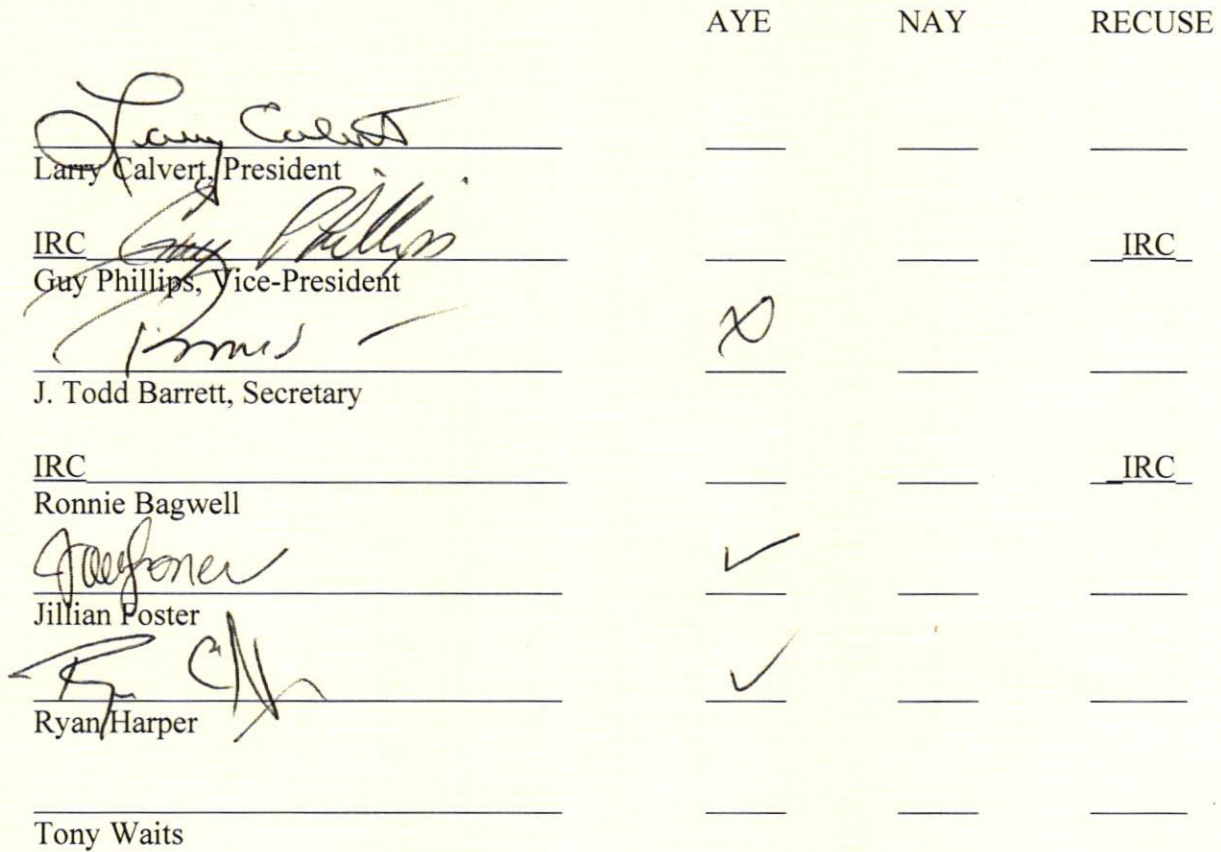 AYE NAY RECUSE
Larry Calvert
Larry Calvert, President
IRC Guy Phillips IRC
Guy Phillips, Vice-President
J. Todd Barrett, Secretary
IRC IRC
Ronnie Bagwell
✓
Jillian Foster
✓
Ryan Harper
Tony Waits